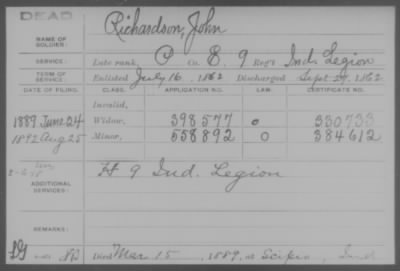 DEAD
Richardson, John
NAME OF SOLDIER:
SERVICE: Late rank, P Co. E. 9 Reg't Ind. Legion
TERM OF SERVICE: Enlisted July 16, 1862 Discharged Sept 29, 1862
DATE OF FILING. CLASS. APPLICATION NO. LAW. CERTIFICATE NO.
Invalid,
1889 June 24 Widow, 398577 o 330733
1892 Aug 25 Minor, 558892 o 384612
H 9 Ind. Legion
ADDITIONAL SERVICES:
REMARKS:
Died Mar 15, 1889, at Scipio, Ind